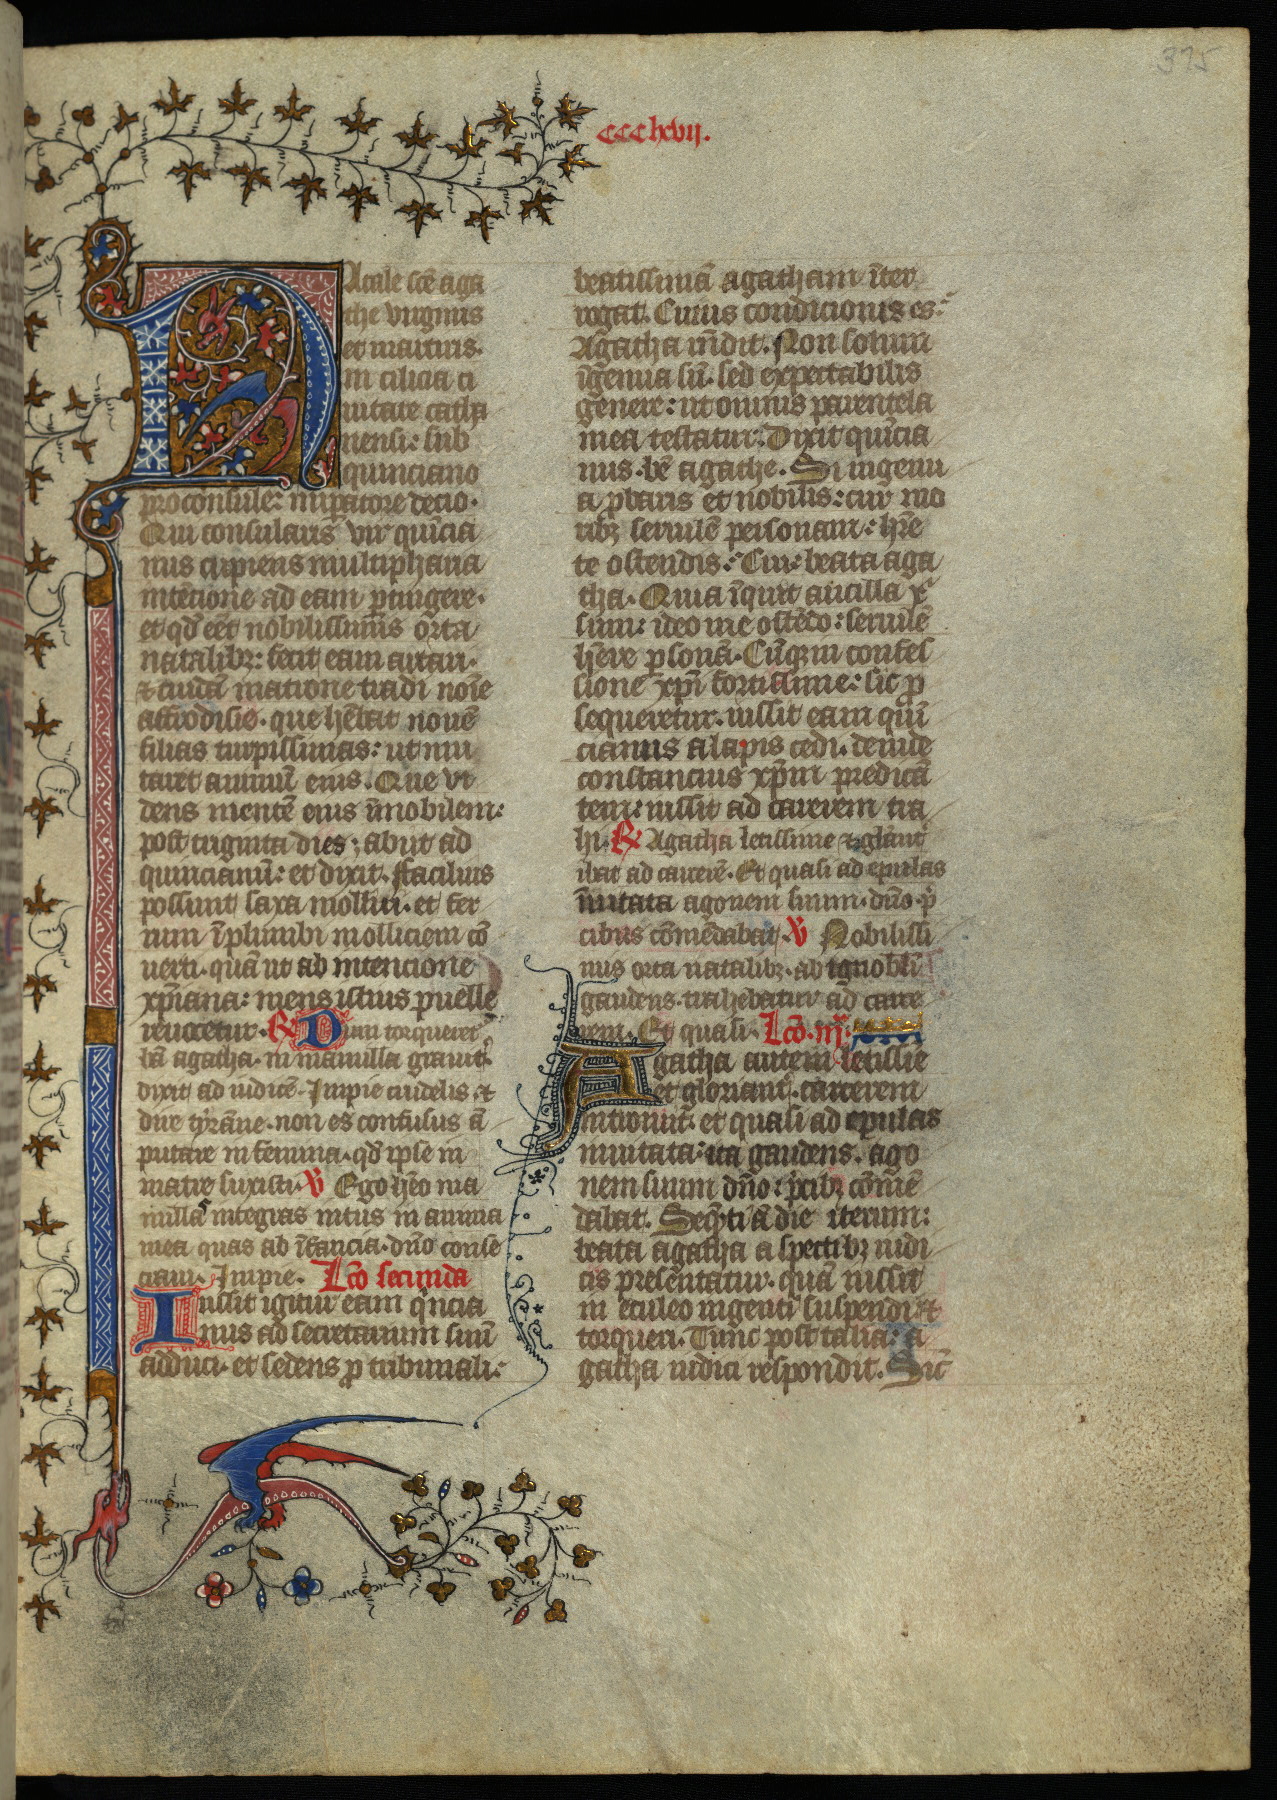 375
ccclxvij.
Natale sce aga
the virginis
et martiris.
in cilicia ci
uitate catha
nensi: sub
quinciano
proconsule: inpatore decio.
Qui consularis vir quicia
nus cupiens multipharia
intēcione ad eam ptingere.
et qd eēt nobilissimis orta
natalibȝ: fecit eam artari.
⁊ cuidā matrone tradi noīe
affrodisie. que hēbat nouē
filias turpissimas: ut mu
taret animū eius. Que vi
dens mentē eius īmobilem:
post triginta dies; abiit ad
quincianū: et dixit. Facilius
possunt saxa molliri. et fer
rum ī plumbi molliciem cō
uerti. quā ut ab intencione
xp̄iana: mens istius puelle
reuocetur. R Dum torqueret᷑
bā agatha. in mamilla grauit᷑
dixit ad iudicē. Impie crudelis ⁊
dire tyrāne. non es confusus ā
putare in femina. qd ipse in
matre suxisti. V Ego hēo ma
millas integras intus in anima
mea quas ab īfancia. dnō conse
craui. Impie. Lcō secunda
Iussit igitur eam qncia
nus ad secretarium suū
adduci. et sedens p tribunali:
beatissimā agatham īter
rogat. Cuius condicionis es:
Agatha rn̄dit. Non solum
īgenua sū. sed expectabilis
genere: ut omnis parentela
mea testatur. Dixit quicia
nus. bē agathe. Si ingenu
a pbaris et nobilis: cur mo
ribȝ seruilē personam: hr̄e
te ostendis: Cui: beata aga
tha. Quia īquit ancilla xp̄i
sum: ideo me ostēdo: seruilē
hēre psonā. Cūqȝ in confes
sione xp̄i fortissime: sic p
sequeretur. iussit eam quī
cianus alapis cedi. deinde
constancius xp̄m predicā
tem: iussit ad carcerem tra
hi. R Agatha letissime ⁊ glāīt᷑
ibat ad carcerē. Et quasi ad epulas
īuitata agonem suum. dnō. p̄
cibus cōmēdabat. V Nobilissi
mis orta natalibȝ. ab ignobli
gaudens. trahebatur ad carce
rem. Et quasi. Lcō. iijᵃ.
Agatha autem letissīe
et gloriant᷑. carcerem
introiuit. et quasi ad epulas
inuitata: ita gaudens. ago
nem suum dnō: pcibȝ cōmē
dabat. Sequti ā die iterum:
beata agatha aspectibȝ iudi
cis presentatur. quā iussit
in eculeo ingenti suspendi ⁊
torqueri. Tunc post talia: a
gatha iudici respondit. Sic